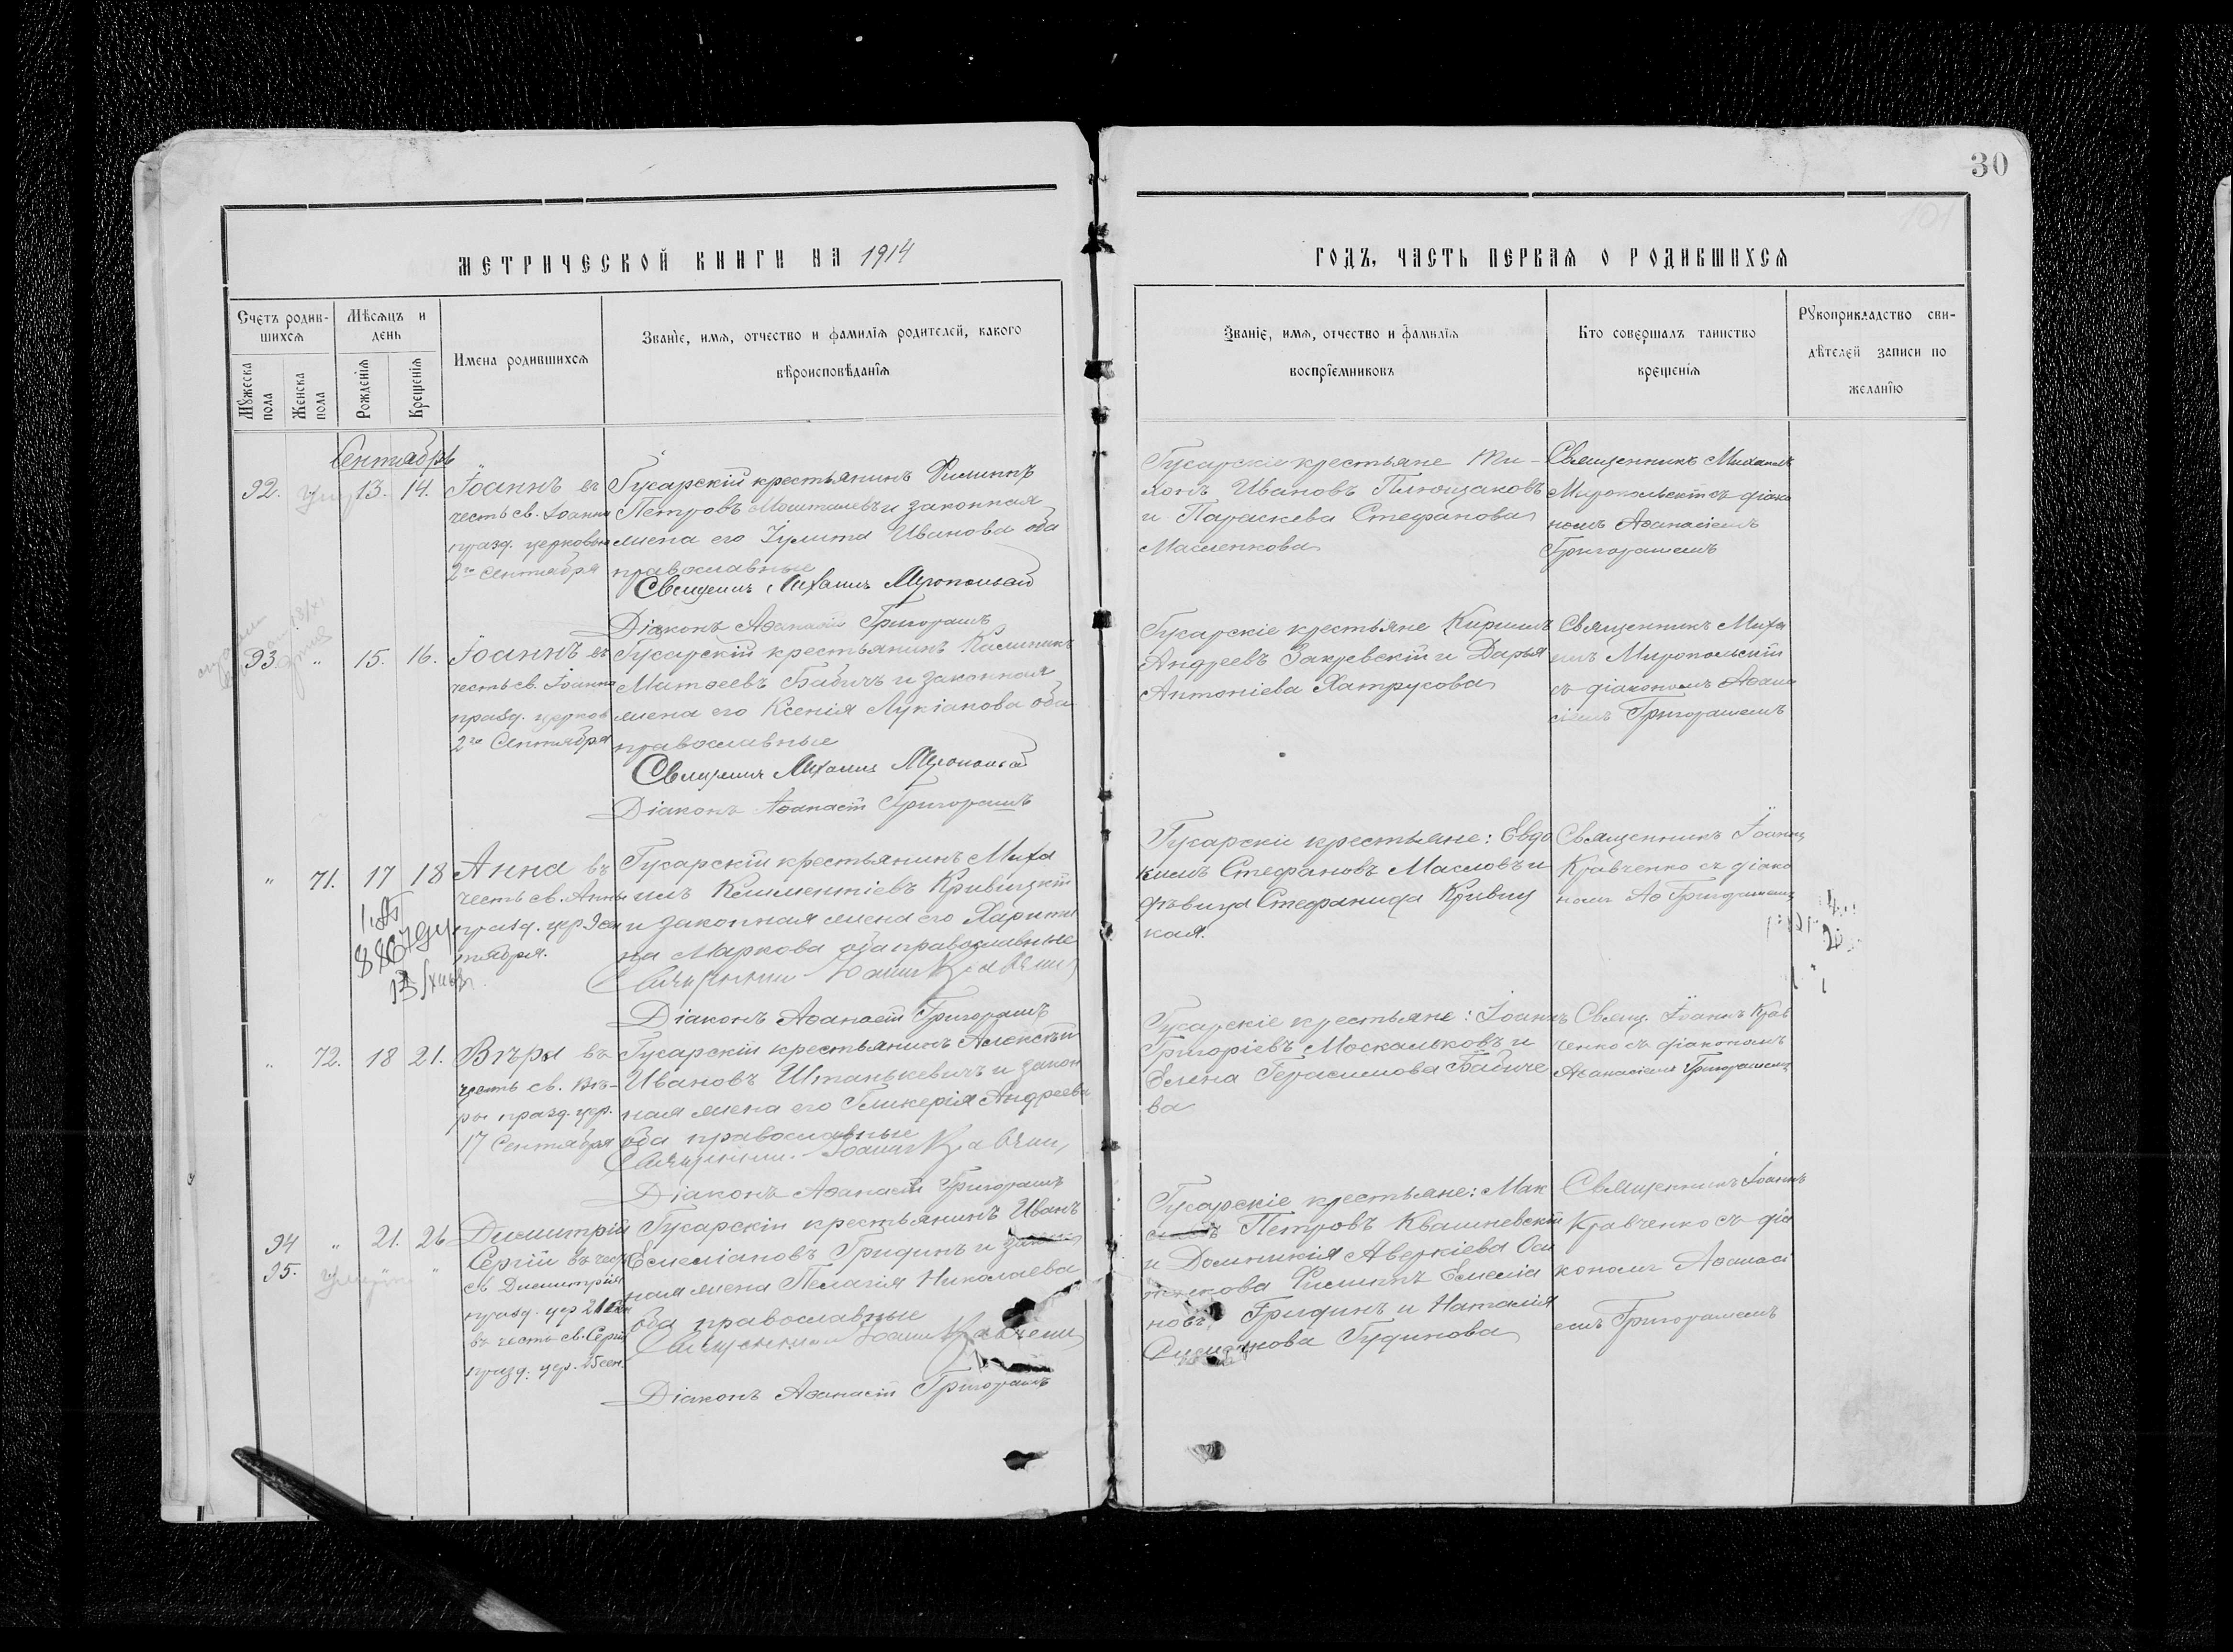 30
101
МЕТРИЧЕСКОЙ КНИГИ НА 1914
ГОДЪ, ЧАСТЬ ПЕРВАЯ О РОДИВШИХСЯ
Счетъ родив-
шихся
Мужеска
пола
Женска
пола
Мѣсяцъ и
день
Рожденія
Крещенія
Имена родившихся
Званіе, имя, отчество и фамилія родителей, какого
вѣроисповѣданія
Званіе, имя, отчество и фамилія
воспріемниковъ
Кто совершалъ таинство
крещенія
Рукоприкладство сви-
дѣтелей записи по
желанію
Сентябрь
92. 13. 14.
Іоаннъ въ
честь св. Іоанна
празд. церковью
2го Сентября
Гусарскій крестьянинъ Филиппъ
Петровъ и законная
жена его Іулита Иванова оба
православные
Священникъ Михаилъ Миропольскій
Діаконъ Аѳанасій Григорашъ
Гусарскіе крестьяне Ти-
хонъ Ивановъ Плющаковъ
и Параскева Стефанова
Масленкова
Священникъ Михаилъ
Миропольскій съ діако
номъ Аѳанасіемъ
Григорашемъ
93. " 15. 16.
Іоаннъ въ
честь св. Іоанна
празд. церков
2го Сентября
Гусарскій крестьянинъ Калинникъ
Матѳеевъ Бабичъ и законная
жена его Ксенія Лукіанова оба
православные
Священникъ Михаилъ Миропольскій
Діаконъ Аѳанасій Григорашъ
Гусарскіе крестьяне Кириллъ
Андреевъ Закревскій и Дарья
Антоніева Хатрусова
Священникъ Миха
илъ Миропольскій
съ діакономъ Аѳана
сіемъ Григорашемъ
" 71. 17 18
Анна въ
честь св. Анны
празд. цер. 9 сен
тября.
Гусарскій крестьянинъ Миха
илъ Климентіевъ Кривицкій
и законная жена его Харити
на Маркова оба православные
Священникъ Іоаннъ Кравченко
Діаконъ Аѳанасій Григорашъ
Гусарскіе крестьяне: Евдо
кимъ Стефановъ Масловъ и
дѣвица Стефанида Кривиц
кая.
Священникъ Іоаннъ
Кравченко съ діако
номъ Аѳ Григорашемъ
" 72. 18 21.
Вѣра въ
честь св. Вѣ-
ры празд. цер.
17 Сентября
Гусарскій крестьянинъ Алексѣй
Ивановъ Штанькевичъ и закон
ная жена его Гликерія Андреева
оба православные
Священникъ Іоаннъ Кравченко
Діаконъ Аѳанасій Григорашъ
Гусарскіе крестьяне: Іоаннъ
Григоріевъ Москальковъ и
Елена Герасимова Бабиче
ва
Свящ. Іоаннъ Крав
ченко съ діакономъ
Аѳанасіемъ Григорашемъ
94 " 21. 26
95. " "
Димитрій
Сергій въ честь
св Димитрія
празд. цер 21 Сен
въ честь св. Сергія
празд. цер. 25 сен.
Гусарскій крестьянинъ Иванъ
Емеліановъ Гридинъ и закон
ная жена Пелагія Николаева
оба православные
Священникъ Іоаннъ Кравченко
Діаконъ Аѳанасій Григорашъ
Гусарскіе крестьяне: Мак
симъ Петровъ Квашневскій
и Домникія Аверкіева
Филиппъ Емеліа
новъ Гридинъ и Наталія
Гудинова
Священникъ Іоаннъ
Кравченко съ діа
кономъ Аѳанасі
емъ Григорашемъ